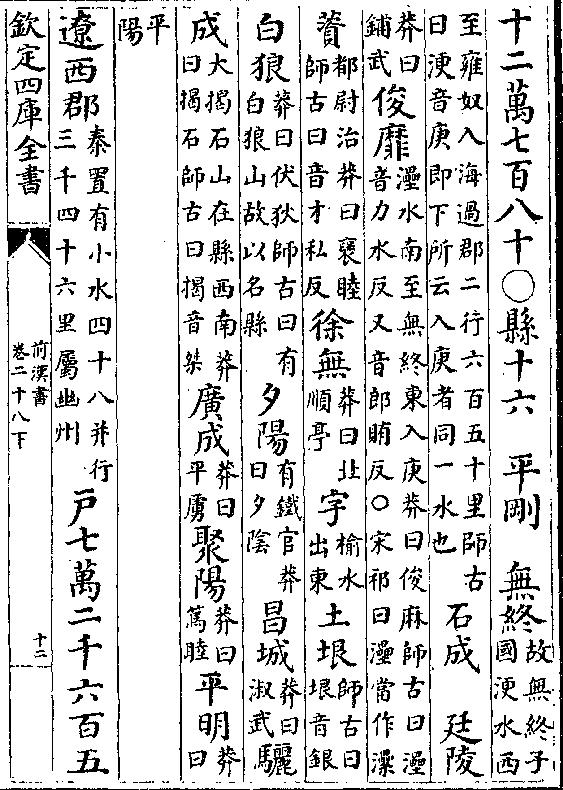 十二萬七百八十〇縣十六 平剛 無終故無終子國浭水西
至雍奴入海過郡二行六百五十里師古曰浭音庚即下所云入庚者同一水也石成 廷陵
莽曰鋪武俊靡灅水南至無終東入庚莽曰俊麻師古曰灅音力水反又音郎賄反〇宋祁曰灅當作澡
薋都尉治莽曰裒睦師古曰音才私反徐無莽曰北順亭字榆水出東土垠師古曰垠音銀
白狼莽曰伏狄師古曰有白狼山故以名縣夕陽有鐵官莽曰夕陰昌城莽曰淑武驪
成大揭石山在縣西南莽曰揭石師古曰揭音桀廣成莽曰平虜聚陽莽曰篤睦平明莽曰
平陽
遼西郡秦置有小水四十八并行三千四十六里屬幽州戶七萬二千六百五
欽定四庫全書
前漢書卷二十八下
十二